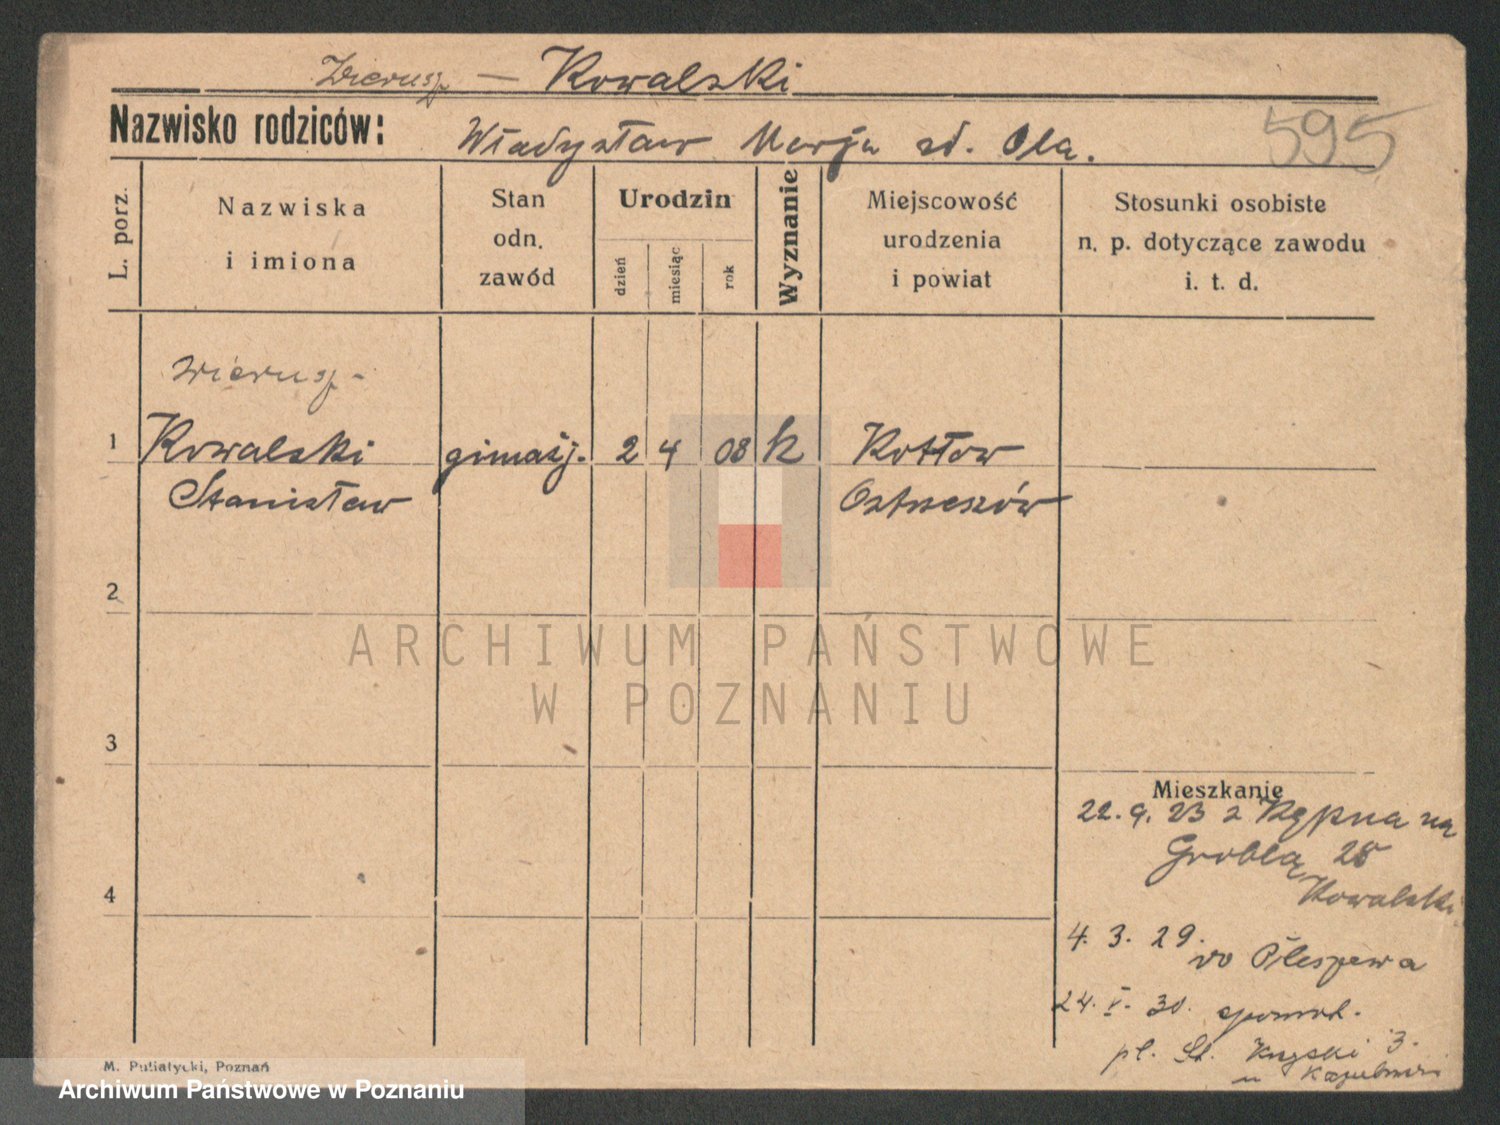 Wierusz — Kowalski
Nazwisko rodziców: Władysław Marja zd. Ola.
595
L. porz.
Nazwiska
i imiona
Stan
odn.
zawód
Urodzin
dzień
miesiąc
rok
Wyznanie
Miejscowość
urodzenia
i powiat
Stosunki osobiste
n. p. dotyczące zawodu
i. t. d.
Wierusz -
1 Kowalski gimazj. 2 4 08 k Kotłow
Stanisław Ostrzeszów
2
3
4
Mieszkanie
22. 9. 23 z Kępna na
Groblą 28
Kowalski
4. 3. 29.
do Pleszewa
24. V. 30.
pl. 3.
M. Putiatycki, Poznań
ARCHIWUM PAŃSTWOWE
W POZNANIU
Archiwum Państwowe w Poznaniu